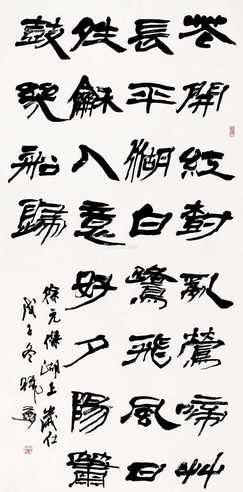 花開紅樹亂鶯啼艸
長平湖白鷺飛風日
晴龢人意好夕陽簫
鼓幾船歸
徐元傑湖上歲在
戊子冬曉